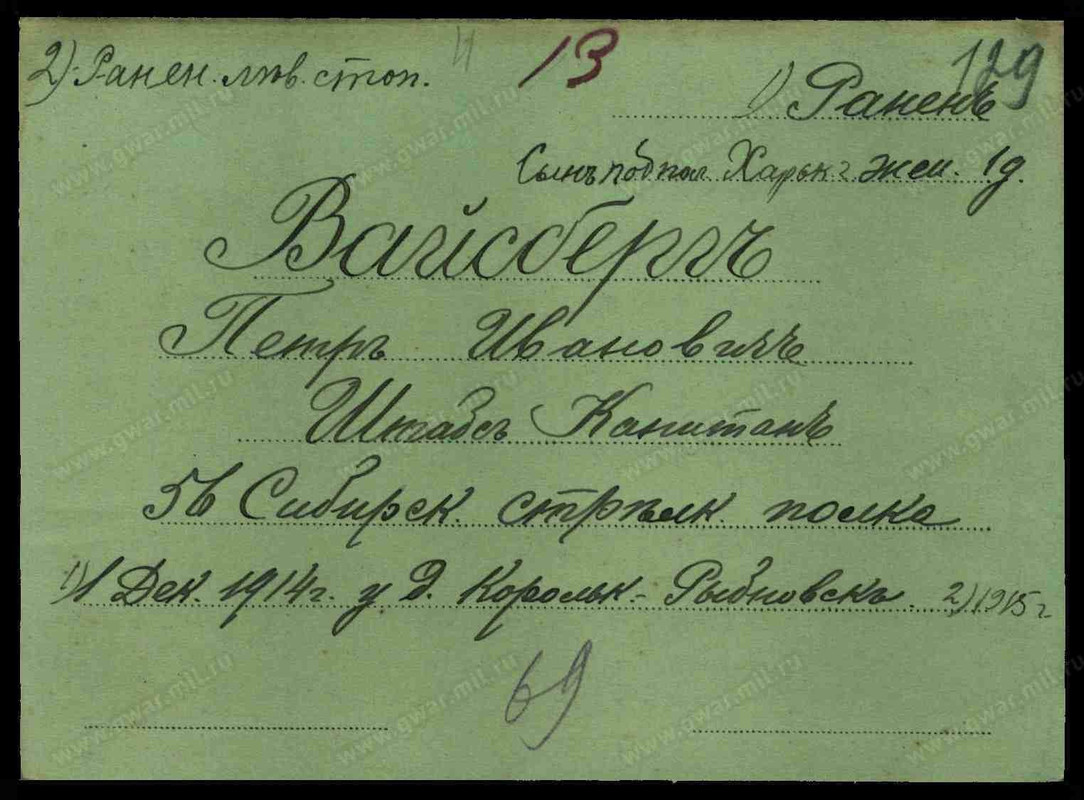 2) Ранен. лѣв. стоп.
13
129
1) Раненъ
Сынъ подпол Харьк г жен. 1 д.
Вайсбергъ
Петръ Ивановичъ
Штабсъ Капитанъ
56 Сибирск. стрѣлк. полка
1) 1 Дек. 1914 г. у д. Корольк.- Рыбновскъ. 2) 1915 г
69
www.gwar.mil.ru